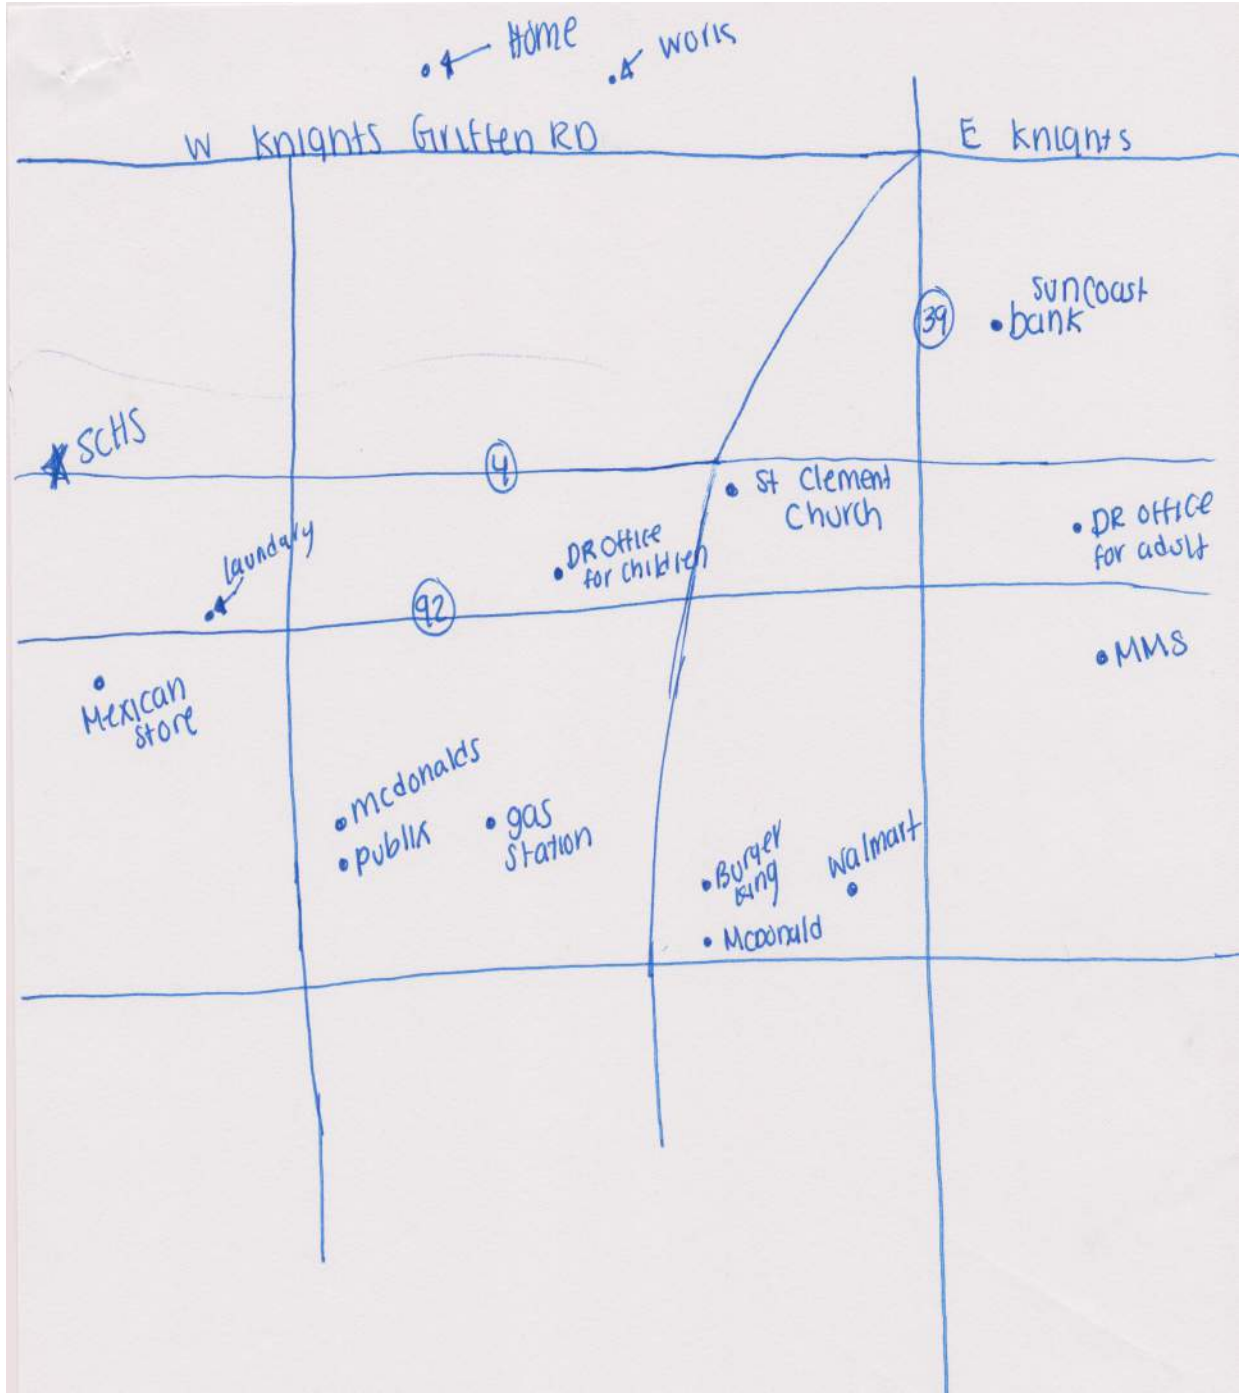 Home
work
W Knights Griffen RD
E Knights
39
suncoast
bank
SCHS
4
St Clement
Church
DR office
for adult
laundary
DR Office
for children
92
MMS
Mexican
store
mcdonalds
publix
gas
station
Burger
king
walmart
Mcdonald